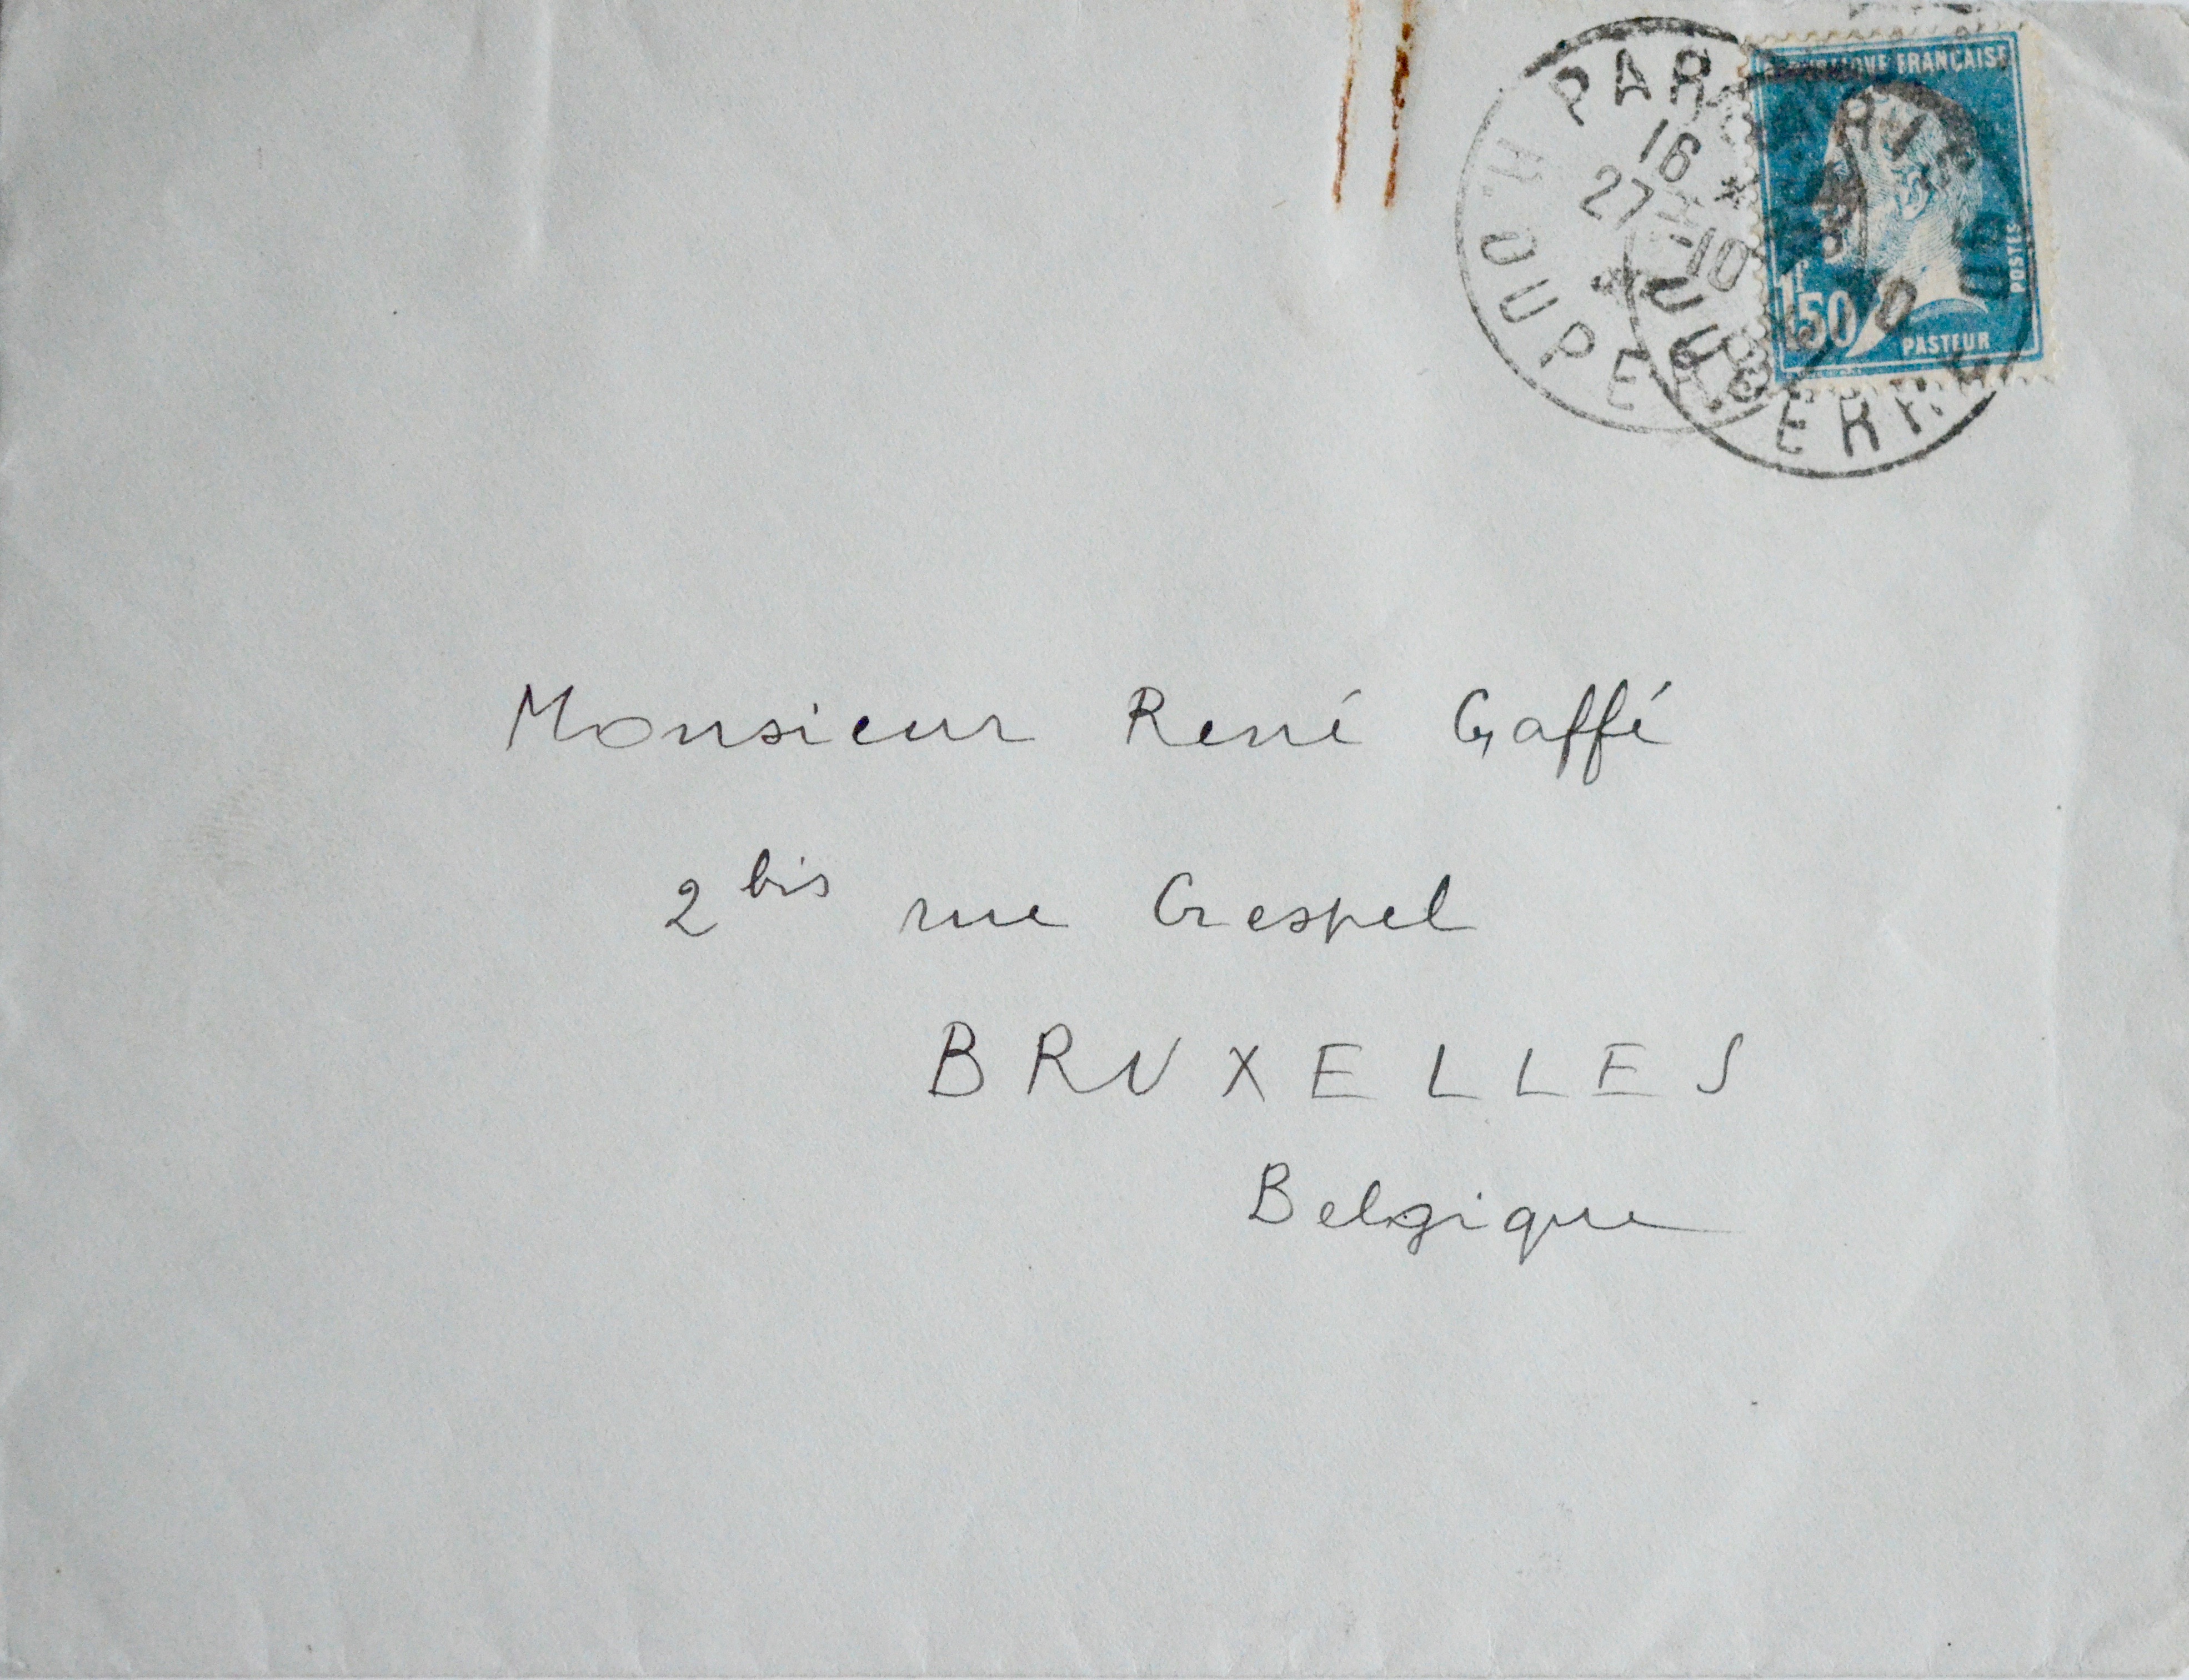 RÉPUBLIQUE FRANÇAISE
POSTES
1F50
PASTEUR
PARIS
16
27-10
PARIS
Monsieur René Gaffé
2 bis rue Crespel
BRUXELLES
Belgique